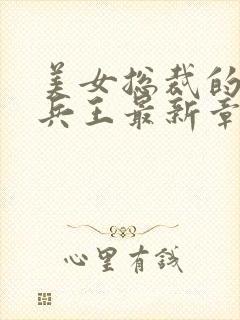 美女总裁的
兵王最新章
心里有钱